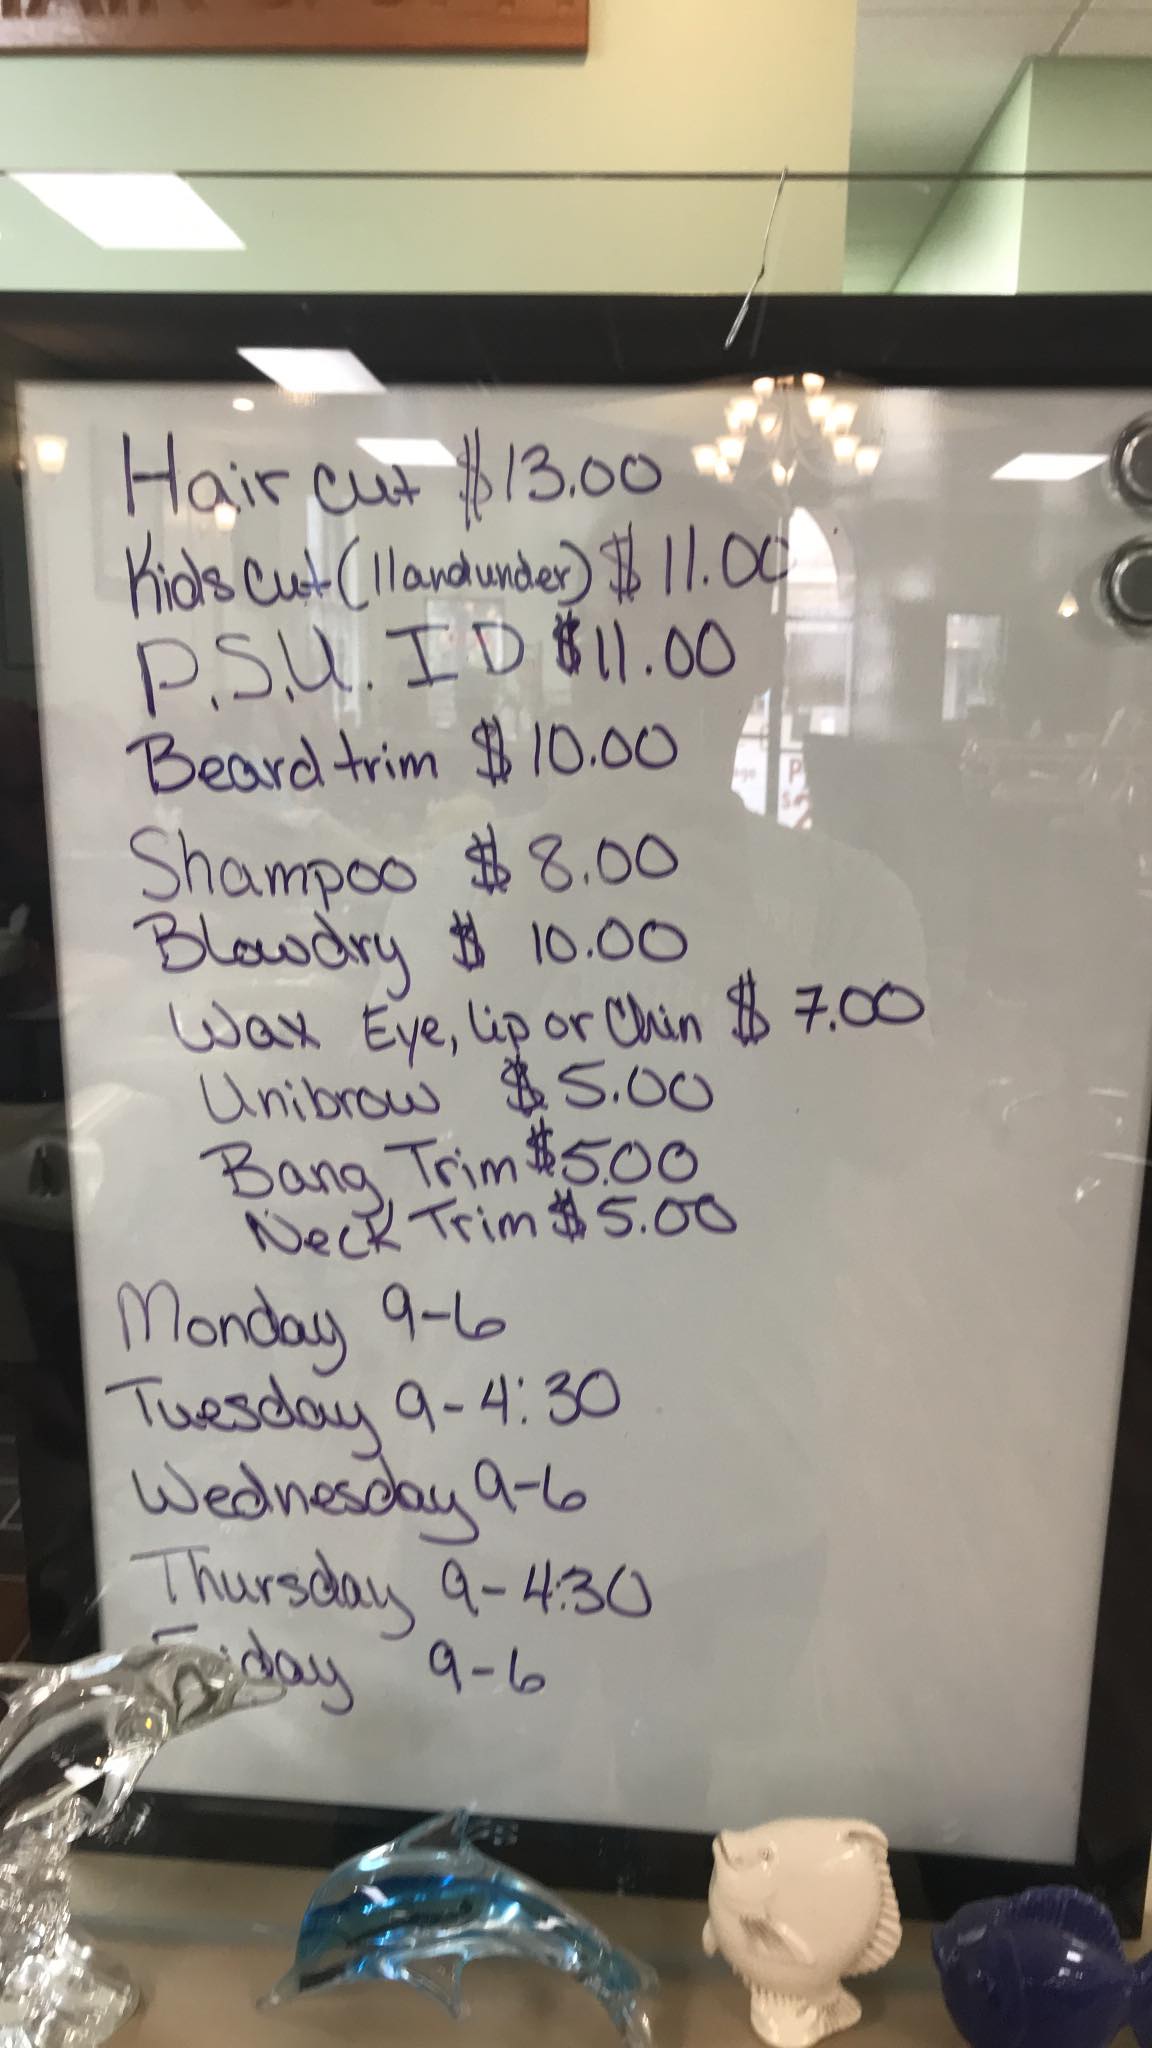 Hair cut $13.00
Kids cut (11 and under) $11.00
P.S.U. ID $11.00
Beard trim $10.00
Shampoo $8.00
Blowdry $10.00
Wax Eye, lip or Chin $7.00
Unibrow $5.00
Bang Trim $5.00
Neck Trim $5.00
Monday 9-6
Tuesday 9-4:30
Wednesday 9-6
Thursday 9-4:30
Friday 9-6